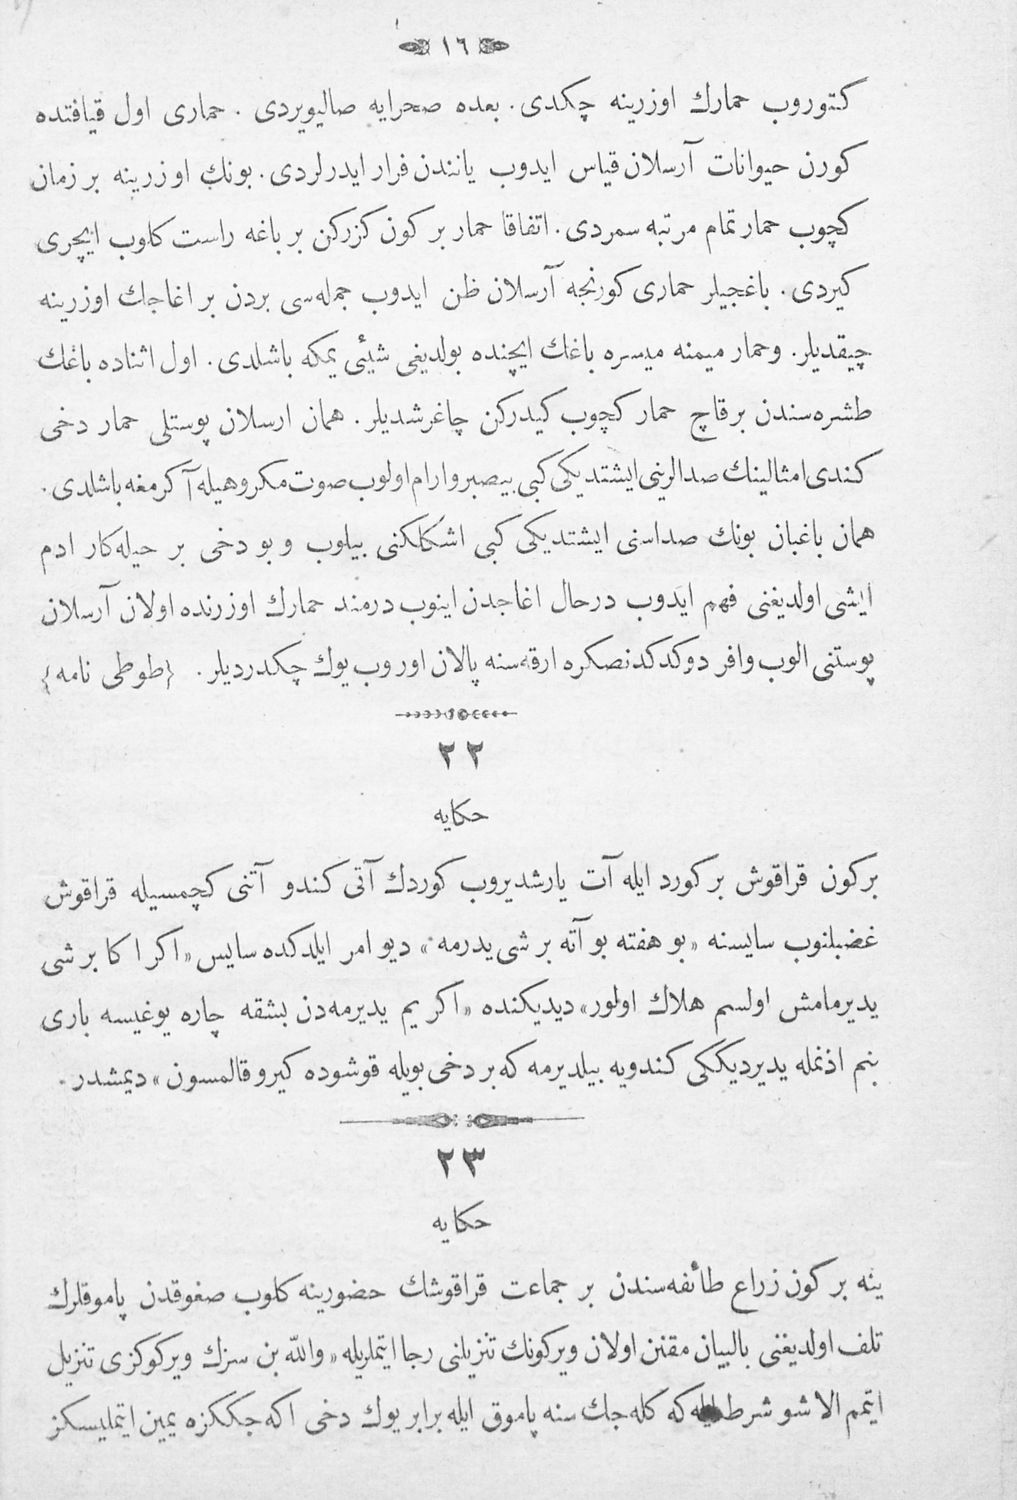 ١٦
كتوروب حمارك اوزرينه چكدى . بعده صحرايه صاليويردى . حمارى اول قيافتده
كورن حيوانات آرسلان قياس ايدوب ياننده‌ن فرار ايدرلردى . بونك اوزرينه بر زمان
كچوب حمار تمام مرتبه سمردى . اتفاقا حمار بر كون كزركن بر باغه راست كلوب ايچرى
كيردى . باغجيلر حمارى كورنجه آرسلان ظن ايدوب جمله‌سى بردن بر اغاجك اوزرينه
چيقديلر . وحمار ميمنه ميسره باغك ايچنده بولديغى شيئى يمكه باشلدى . اول اثناده باغك
طشره‌سندن برقاچ حمار كچوب كيدركن چاغرشديلر . همان ارسلان پوستلى حمار دخى
كندى امثالينك صدالرينى ايشتديكى كبى بيصبروارام اولوب صوت مكروهيله آكرمغه باشلدى .
همان باغبان بونك صداسنى ايشتديكى كبى اشكلكنى بيلوب وبو دخى بر حيله‌كار ادم
ايشى اولديغنى فهم ايدوب درحال اغاجدن اينوب درمند حمارك اوزرنده اولان آرسلان
پوستنى الوب وافر دوكدكدنصكره ارقه‌سنه پالان اوروب يوك چكدرديلر . {طوطى نامه}
٢٢
حكايه
بركون قراقوش بر كورد ايله آت يارشديروب كوردك آتى كندو آتنى كچمسيله قراقوش
غضبلنوب سايسنه «بو هفته بو آته بر شى يدرمه» ديو امر ايلدكده سايس «اكر ا كا بر شى
يديرمامش اولسم هلاك اولور» ديديكنده «اكر يم يديرمه‌دن بشقه چاره يوغيسه بارى
بنم اذنمله يديرديككى كندويه بيلديرمه كه بر دخى بويله قوشوده كيرو قالمسون» ديمشدر .
٢٣
حكايه
ينه بر كون زراع طائفه‌سندن بر جماعت قراقوشك حضورينه كلوب صغوقدن پاموقلرك
تلف اولديغنى بالبيان مقنن اولان ويركونك تنزيلنى رجا ايتملريله «والله بن سزك ويركوكزى تنزيل
ايتمم الا شو شرطله كه كله‌جك سنه پاموق ايله برابر يوك دخى اكه‌جككزه يمين ايتمليسكز